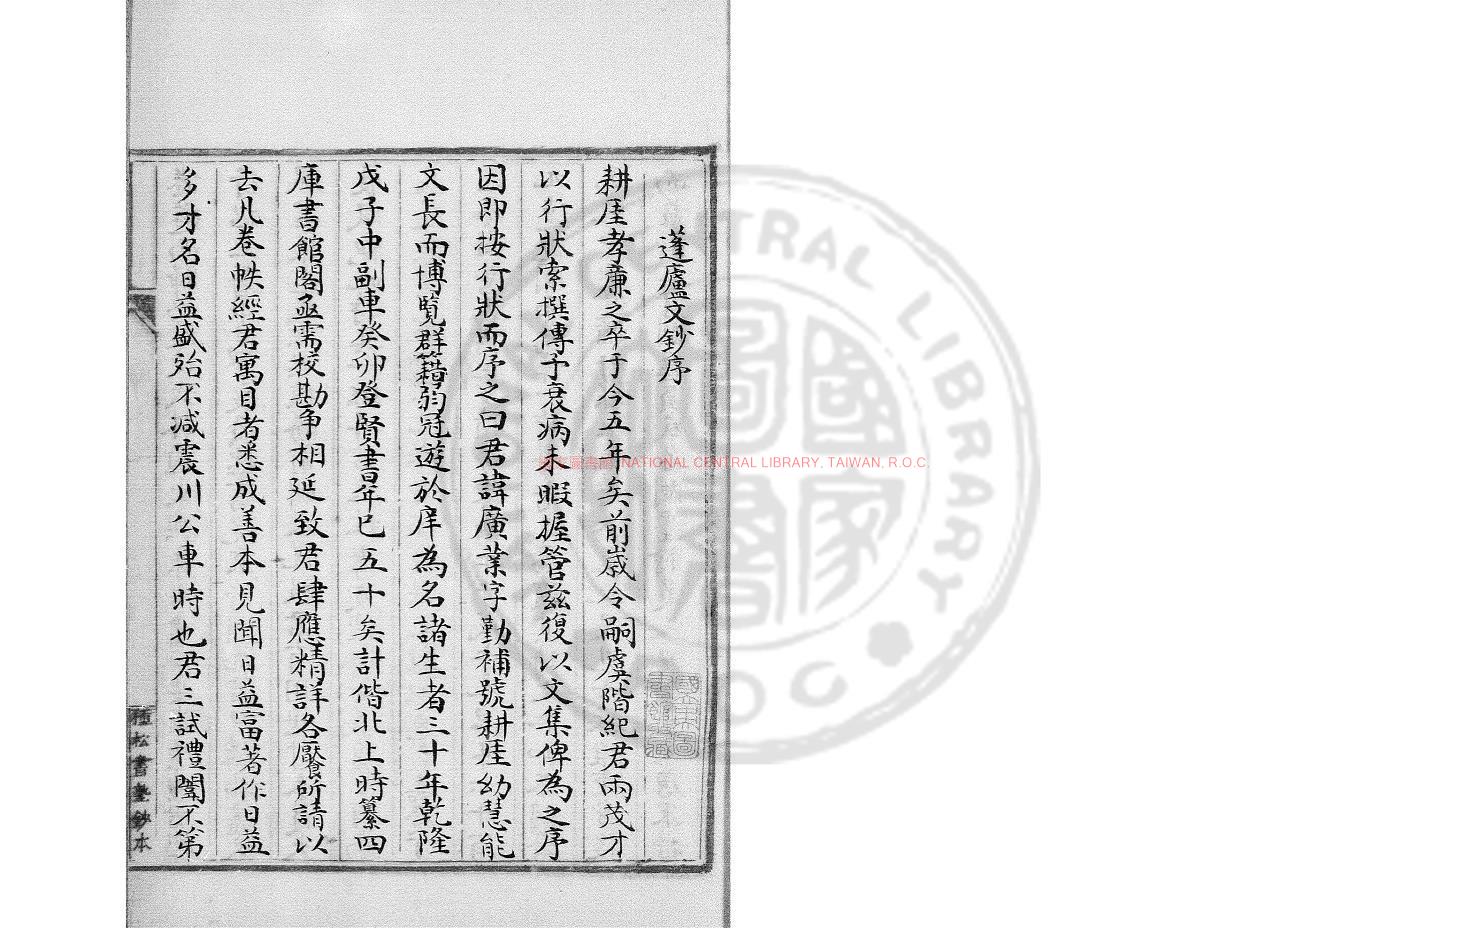 蓬廬文鈔序
耕厓孝廉之卒于今五年矣前歲令嗣虞階紀君兩茂才
以行狀索撰傳予衰病未暇握管茲復以文集俾為之序
因即按行狀而序之曰君諱廣業字勤補號耕厓幼慧能
文長而博覽群籍弱冠遊於庠為名諸生者三十年乾隆
戊子中副車癸卯登賢書年已五十矣計偕北上時纂四
庫書館閣亟需校勘争相延致君肆應精詳各饜所請以
去凡卷帙經君寓目者悉成善本見聞日益富著作日益
多才名日益盛殆不减震川公車時也君三試禮闈不第
種松書塾鈔本
NATIONAL CENTRAL LIBRARY, TAIWAN, R.O.C.
CENTRAL LIBRARY
國家圖書館